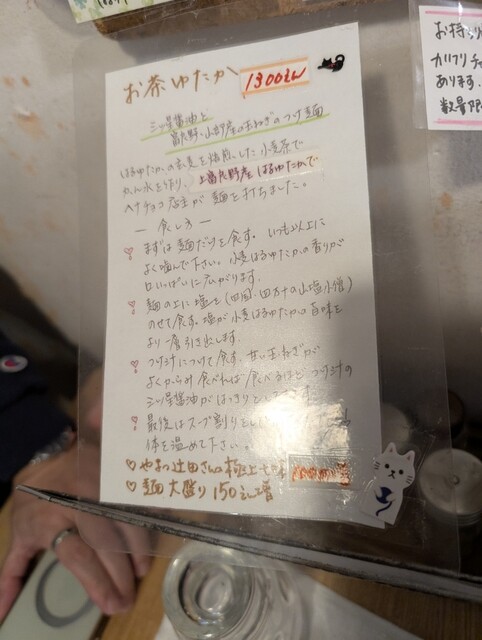 お茶ゆたか 1300えん
三ツ星醤油と
富良野・山部産の玉ねぎのつけ麺
はるゆたかの玄麦を焙煎した小麦茶で
れん水を作り、上富良野産はるゆたかで
ヘナチョコ店主が麺を打ちました。
― 食し方 ―
まずは麺だけを食す。いつも以上に
よく噛んで下さい。小麦はるゆたかの香りが
口いっぱいに広がります。
麺の上に塩を(四国・四万十の山塩小僧)
のせて食す。塩が小麦はるゆたかの旨味を
より一層引き出します。
つけ汁につけて食す。甘い玉ねぎが
よくからみ食べれば食べるほどつけ汁の
三ツ星醤油がはっきりと
最後はスープ割りと
体を温めて下さい。
♡やまつ辻田さんの極上七味
♡麺大盛り150えん増
お持ち
カリフリチ
あります。
数量限